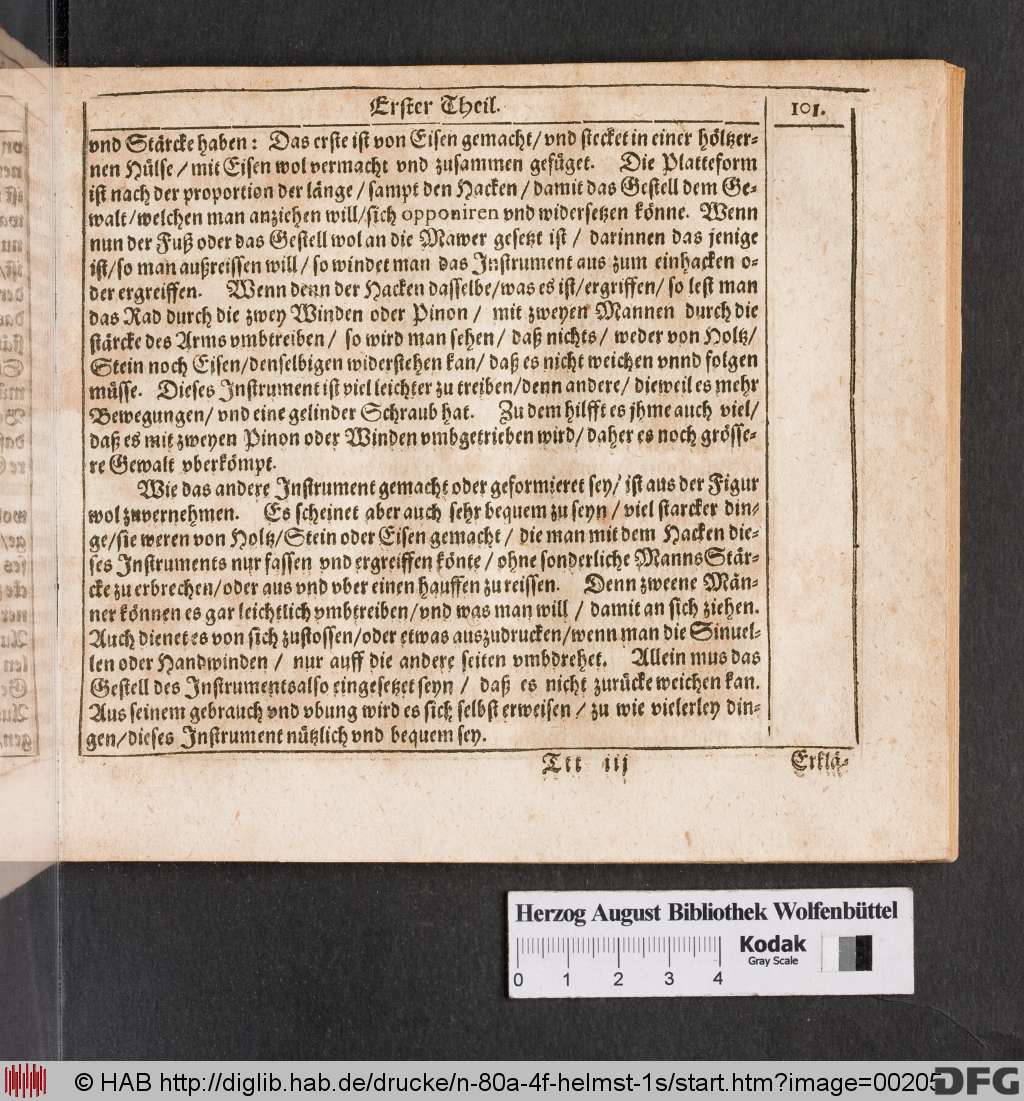 Erster Theil.
101.
vnd Stärcke haben: Das erste ist von Eisen gemacht/ vnd stecket in einer höltzer-
nen Hülse / mit Eisen wol vermacht vnd zusammen gefüget. Die Platteform
ist nach der proportion der länge / sampt den Hacken / damit das Gestell dem Ge-
walt/welchen man anziehen will/sich opponiren vnd widersetzen könne. Wenn
nun der Fuß oder das Gestell wol an die Mawer gesetzt ist / darinnen das jenige
ist/so man außreissen will / so windet man das Instrument aus zum einhacken o-
der ergreiffen. Wenn denn der Hacken dasselbe/was es ist/ergriffen/ so lest man
das Rad durch die zwey Winden oder Pinon / mit zweyen Mannen durch die
stärcke des Arms vmbtreiben / so wird man sehen/ daß nichts/ weder von Holtz/
Stein noch Eisen/denselbigen widerstehen kan/ daß es nicht weichen vnnd folgen
müsse. Dieses Instrument ist viel leichter zu treiben/denn andere/ dieweil es mehr
Bewegungen/ vnd eine gelinder Schraub hat. Zu dem hilfft es jhme auch viel/
daß es mit zweyen Pinon oder Winden vmbgetrieben wird/ daher es noch grösse-
re Gewalt vberkömpt.
Wie das andere Instrument gemacht oder geformieret sey/ ist aus der Figur
wol zuvernehmen. Es scheinet aber auch sehr bequem zu seyn / viel starcker din-
ge/sie weren von Holtz/Stein oder Eisen gemacht / die man mit dem Hacken die-
ses Instruments nur fassen vnd ergreiffen könte / ohne sonderliche Manns Stär-
cke zu erbrechen/oder aus vnd vber einen hauffen zu reissen. Denn zweene Män-
ner können es gar leichtlich vmbtreiben/vnd was man will / damit an sich ziehen.
Auch dienet es von sich zustossen/oder etwas auszudrucken/wenn man die Sinuel-
len oder Handwinden / nur auff die andere seiten vmbdrehet. Allein mus das
Gestell des Instruments also eingesetzet seyn / daß es nicht zurücke weichen kan.
Aus seinem gebrauch vnd vbung wird es sich selbst erweisen / zu wie vielerley din-
gen/dieses Instrument nützlich vnd bequem sey.
Ttt iij
Erklä-
Herzog August Bibliothek Wolfenbüttel
Kodak
Gray Scale
0 1 2 3 4
© HAB http://diglib.hab.de/drucke/n-80a-4f-helmst-1s/start.htm?image=00205
DFG